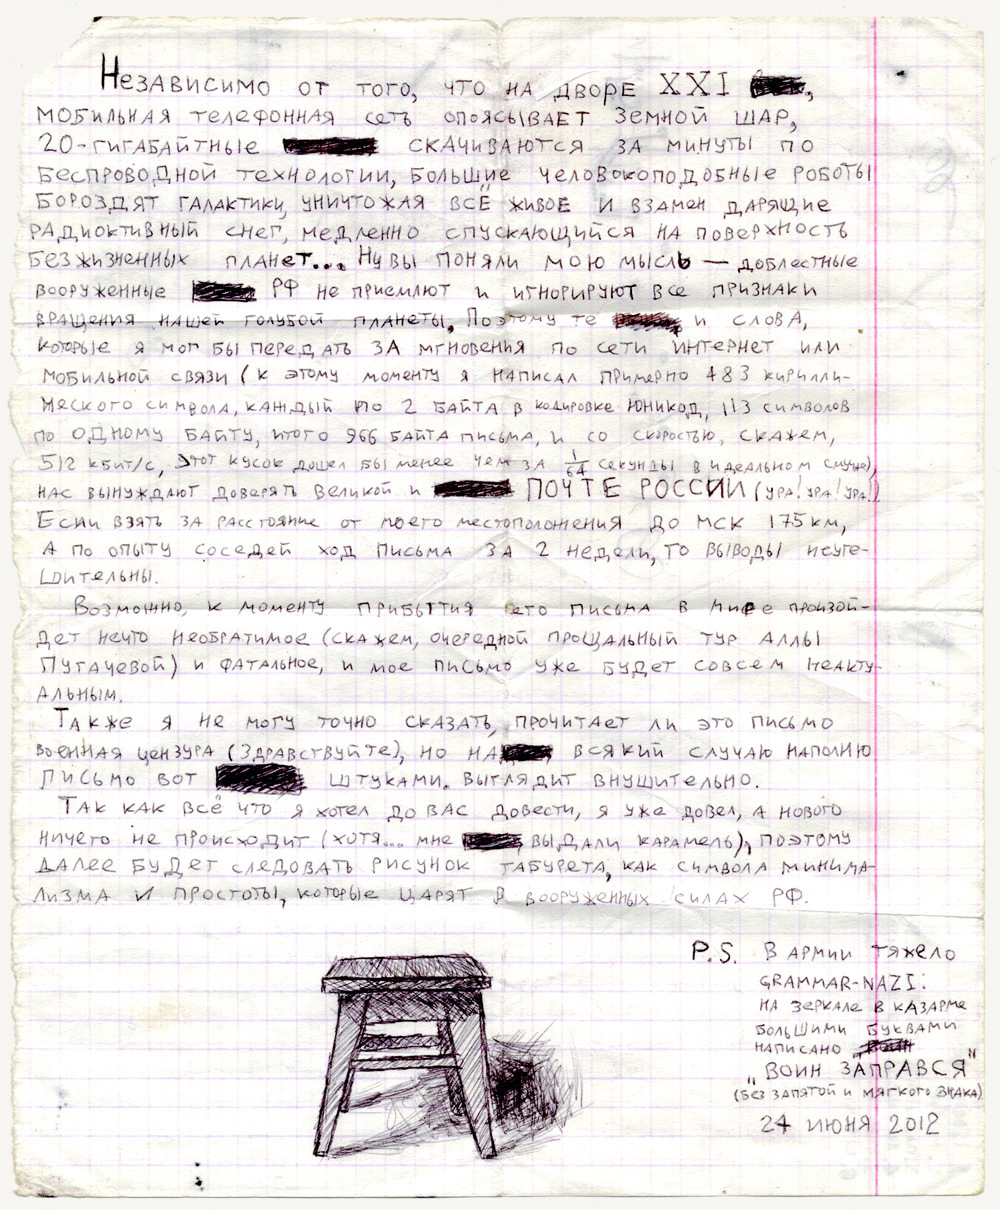 Независимо от того, что на дворе XXI ,
мобильная телефонная сеть опоясывает Земной шар,
20-гигабайтные скачиваются за минуты по
беспроводной технологии, большие человокоподобные роботы
бороздят галактики, уничтожая всё живое и взамен дарящие
радиоктивный снег, медленно спускающийся на поверхность
безжизненных планет... Ну вы поняли мою мысль — доблестные
вооруженные РФ не приемлют и игнорируют все признаки
вращения нашей голубой планеты. Поэтому те и слова,
которые я мог бы передать за мгновения по сети интернет или
мобильной связи (к этому моменту я написал примерно 483 кирилли-
ческого символа, каждый по 2 байта в кодировке Юникод, 113 символов
по одному байту, итого 966 байта письма, и со скоростью, скажем,
512 кбит/с, этот кусок дошел бы менее чем за 1/64 секунды в идеальном случае),
нас вынуждают доверять великой и ПОЧТЕ РОССИИ (ура! ура! ура!)
Если взять за расстояние от моего местоположения до мск 175км,
а по опыту соседей ход письма за 2 недели, то выводы неуте-
шительны.
Возможно, к моменту прибытия этого письма в мире произой-
дет нечто необратимое (скажем, очередной прощальный тур Аллы
Пугачевой) и фатальное, и мое письмо уже будет совсем неакту-
альным.
Также я не могу точно сказать, прочитает ли это письмо
военная цензура (Здравствуйте), но на всякий случаю наполню
письмо вот штуками. Выглядит внушительно.
Так как всё что я хотел до вас довести, я уже довел, а нового
ничего не происходит (хотя... мне выдали карамель), поэтому
далее будет следовать рисунок табурета, как символа минима-
лизма и простоты, которые царят в вооруженных силах РФ.
P.S. В армии тяжело
GRAMMAR-NAZI:
на зеркале в казарме
большими буквами
написано
„ВОИН ЗАПРАВСЯ"
(без запятой и мягкого знака)
24 июня 2012